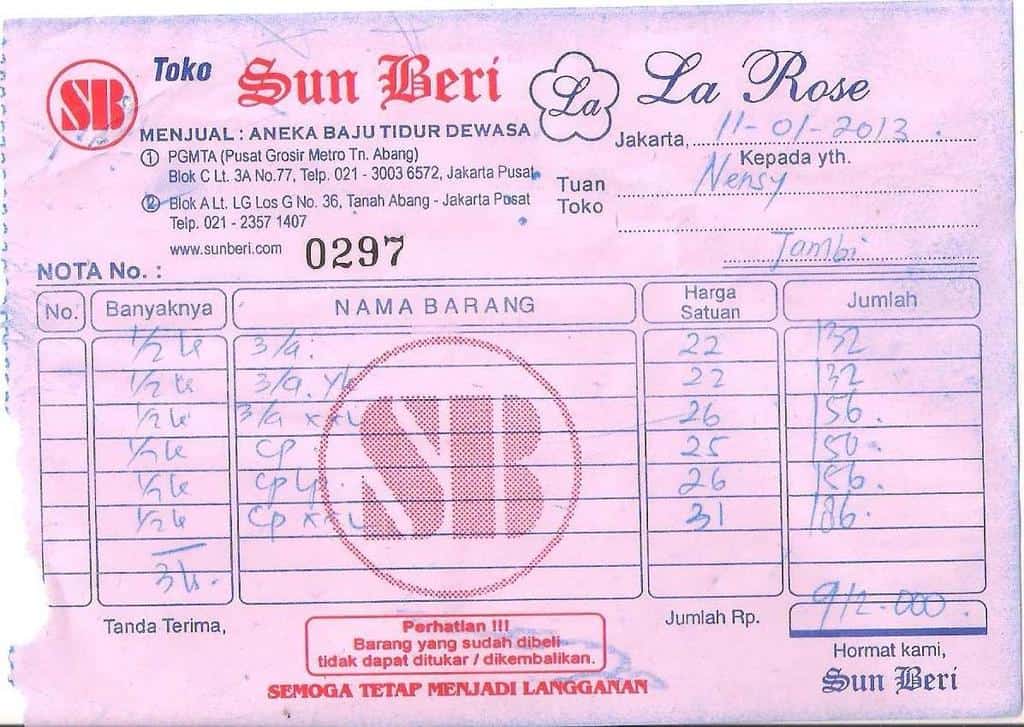 SB Toko Sun Beri La La Rose
MENJUAL : ANEKA BAJU TIDUR DEWASA
① PGMTA (Pusat Grosir Metro Tn. Abang)
Blok C Lt. 3A No.77, Telp. 021 - 3003 6572, Jakarta Pusat
② Blok A Lt. LG Los G No. 36, Tanah Abang - Jakarta Pusat
Telp. 021 - 2357 1407
www.sunberi.com
Jakarta, 11-01-2013.
Kepada yth.
Tuan Nensy
Toko
Jambi
NOTA No. : 0297
No. Banyaknya NAMA BARANG Harga Satuan Jumlah
1/2 3/a. 22 132
1/2 3/a. 22 132
1/2 3/a 26 156.
1/2 cp 25 150.
1/2 cp 26 156.
1/2 cp 31 186.
SB
3
Jumlah Rp. 912.000.
Tanda Terima,
Perhatian !!!
Barang yang sudah dibeli
tidak dapat ditukar / dikembalikan.
SEMOGA TETAP MENJADI LANGGANAN
Hormat kami,
Sun Beri